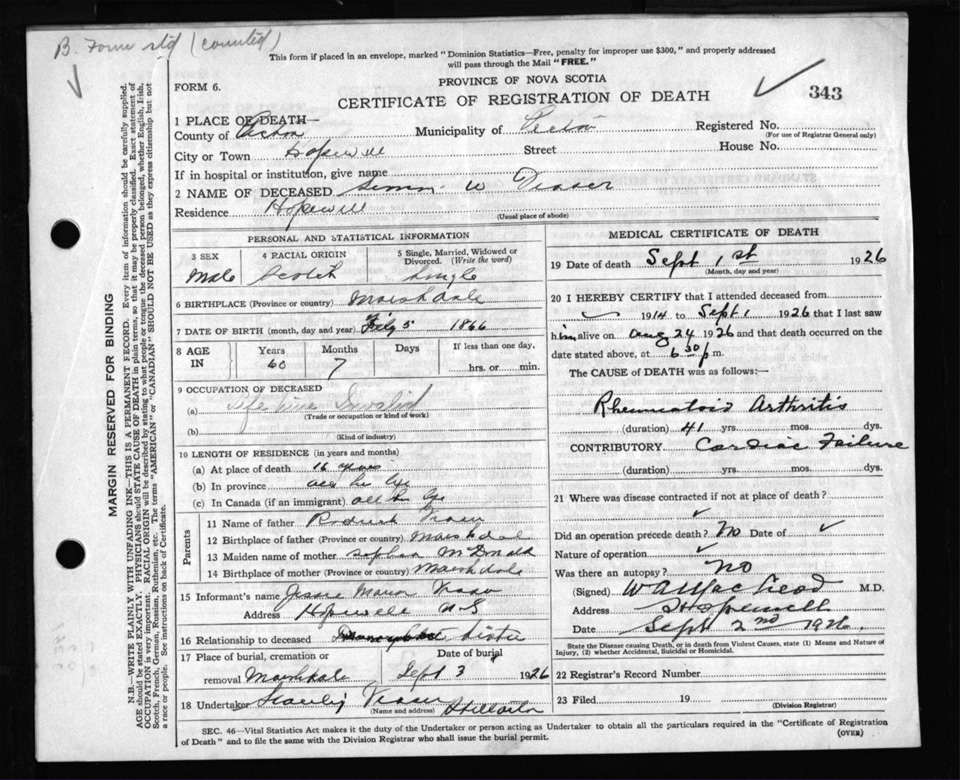 B. Form std (counted)
This form if placed in an envelope, marked "Dominion Statistics—Free, penalty for improper use $300," and properly addressed
will pass through the Mail "FREE."
PROVINCE OF NOVA SCOTIA
FORM 6.
CERTIFICATE OF REGISTRATION OF DEATH
343
1 PLACE OF DEATH—
County of Pictou Municipality of Pictou Registered No.
(For use of Registrar General only)
City or Town Hopewell Street House No.
If in hospital or institution, give name
2 NAME OF DECEASED Simon W Fraser
Residence Hopewell
(Usual place of abode)
MARGIN RESERVED FOR BINDING
N.B.—WRITE PLAINLY WITH UNFADING INK—THIS IS A PERMANENT RECORD. Every item of information should be carefully supplied.
AGE should be stated EXACTLY. PHYSICIANS should STATE CAUSE OF DEATH in plain terms, so that it may be properly classified. Exact statement of
OCCUPATION is very important. RACIAL ORIGIN will be described by stating to what people or tongue the deceased person belonged, whether English, Irish,
Scotch, French, German, Russian, Ruthenian, etc. The terms "AMERICAN" or "CANADIAN" SHOULD NOT BE USED as they express citizenship but not
a race or people. See instructions on back of Certificate.
PERSONAL AND STATISTICAL INFORMATION
3 SEX
Male
4 RACIAL ORIGIN
Scotch
5 Single, Married, Widowed or
Divorced. (Write the word)
Single
6 BIRTHPLACE (Province or country) Marshdale
7 DATE OF BIRTH (month, day and year) 5 1866
8 AGE IN
Years 60
Months 7
Days
If less than one day,
hrs. or min.
9 OCCUPATION OF DECEASED
(a) Life time Invalid
(Trade or occupation or kind of work)
(b)
(Kind of industry)
10 LENGTH OF RESIDENCE (in years and months)
(a) At place of death 16 years
(b) In province all his life
(c) In Canada (if an immigrant) all his life
Parents
11 Name of father Roderick Fraser
12 Birthplace of father (Province or country) Marshdale
13 Maiden name of mother Sophia McDonald
14 Birthplace of mother (Province or country) Marshdale
15 Informant's name Jessie Marion Fraser
Address Hopewell N S
16 Relationship to deceased Sister
17 Place of burial, cremation or
removal Marshdale
Date of burial
Sept 3 1926
18 Undertaker Fraser
(Name and address)
MEDICAL CERTIFICATE OF DEATH
19 Date of death Sept 1st 1926
(Month, day and year)
20 I HEREBY CERTIFY that I attended deceased from
1914 to Sept 1 1926 that I last saw
him alive on Aug 24 1926 and that death occurred on the
date stated above, at 6 30 p m.
The CAUSE of DEATH was as follows:—
Rheumatoid Arthritis
(duration) 41 yrs. mos. dys.
CONTRIBUTORY Cardiac Failure
(duration) yrs. mos. dys.
21 Where was disease contracted if not at place of death?
Did an operation precede death? No Date of
Nature of operation
Was there an autopsy? No
(Signed) W A MacLeod M.D.
Address Hopewell
Date Sept 2nd 1926
State the Disease causing Death, or in death from Violent Causes, state (1) Means and Nature of
Injury, (2) whether Accidental, Suicidal or Homicidal.
22 Registrar's Record Number
23 Filed 19
(Division Registrar)
SEC. 46—Vital Statistics Act makes it the duty of the Undertaker or person acting as Undertaker to obtain all the particulars required in the "Certificate of Registration
of Death" and to file the same with the Division Registrar who shall issue the burial permit.
(OVER)